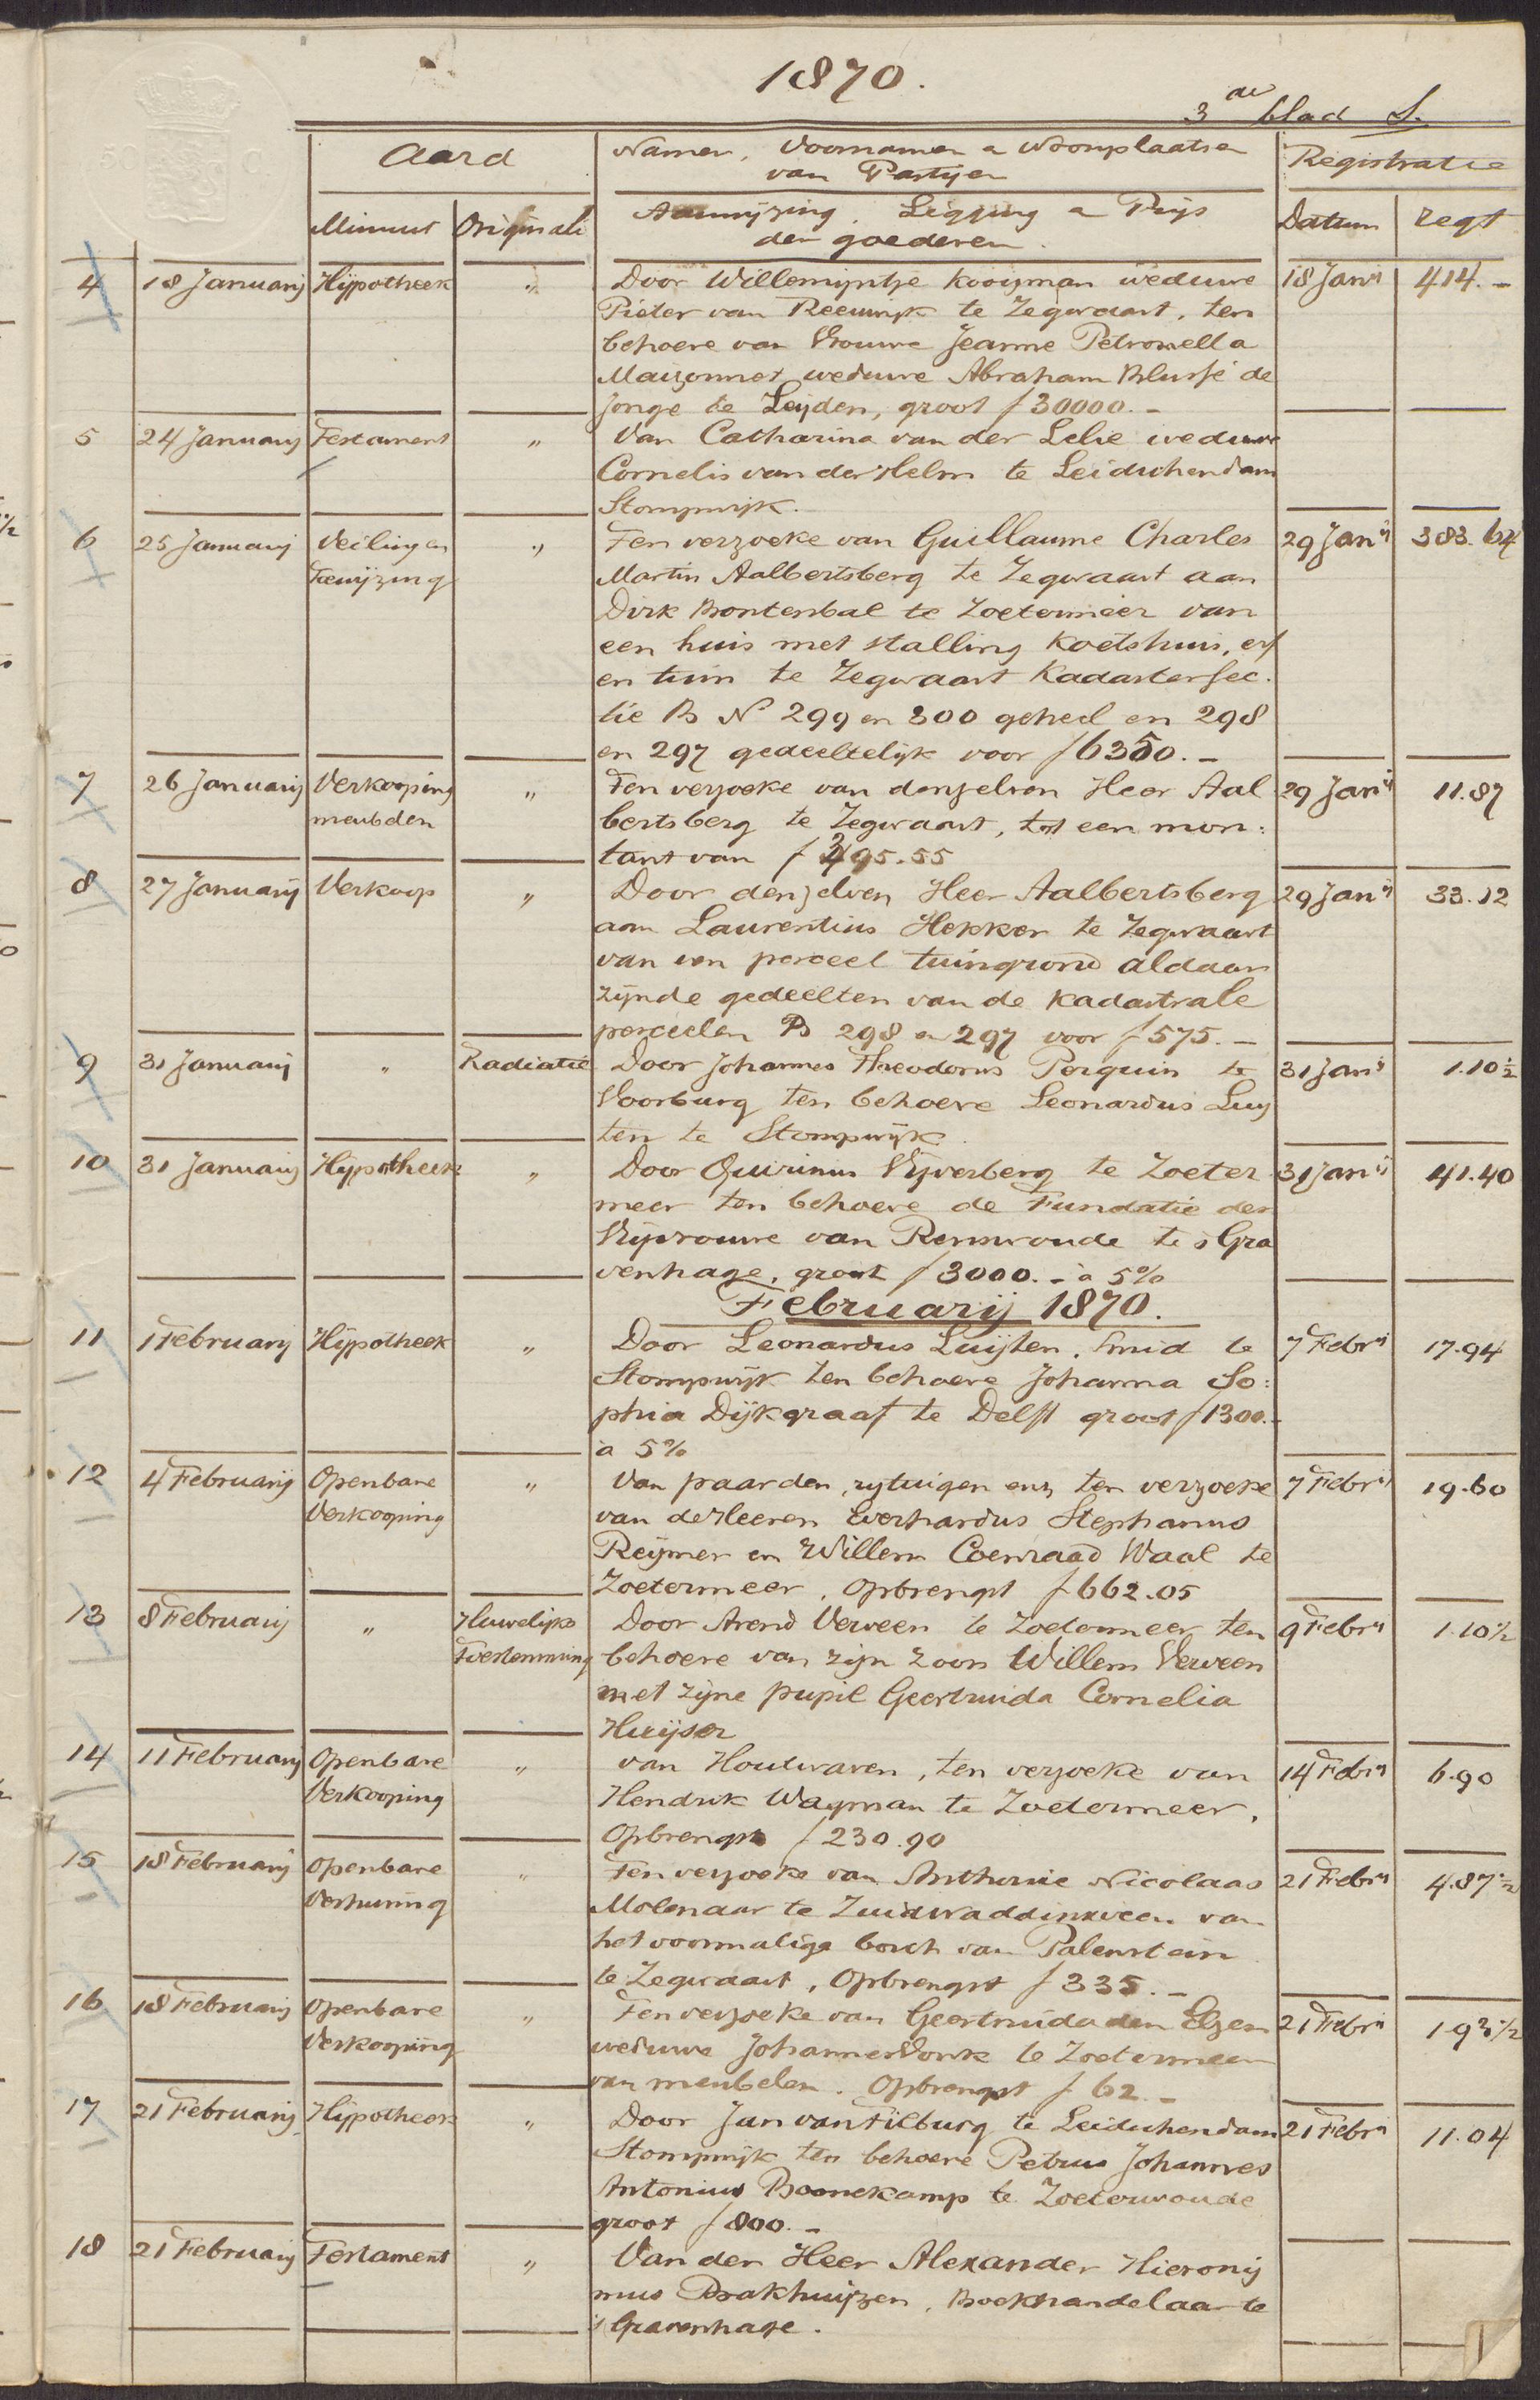 1870.
3de blad S.
Aard
Namen, Voornamen & Woonplaatsen van Partijen
Registratie
Minuut Originali
Aanwijzing, Ligging & Prijs der goederen.
Datum regt
4 18 Januarij Hijpotheek " Door Willemijntje Kooijman weduwe 18 Janij 414.-
Pieter van Reeuwijk te Zegwaart, ten
behoeve van Vrouwe Jeanne Petronella
Mauzonnet weduwe Abraham Blussé de
Jonge te Leijden, groot f 30000.-
5 24 Januarij Testament " Van Catharina van der Lelie weduwe
Cornelis van der Helm te Leidschendam
Stompwijk.
6 25 Januarij Veiling en " Ten verzoeke van Guillaume Charles 29 Janij 383.64
Toewijzing Martin Aalbertsberg te Zegwaart aan
Dirk Bontenbal te Zoetermeer van
een huis met stalling Koetshuis, erf
en tuin te Zegwaart Kadaster sec.
tie B N 299 en 300 geheel en 298
en 297 gedeeltelijk voor f 6350.-
7 26 Januarij Verkooping " Ten verzoeke van denzelven Heer Aal 29 Janij 11.87
meubelen bertsberg te Zegwaart, tot een mon:
tant van f 395.55
8 27 Januarij Verkoop " Door denzelven Heer Aalbertsberg 29 Janij 33.12
aan Laurentius Hekker te Zegwaart
van een perceel tuingrond aldaar
zijnde gedeelten van de kadastrale
perceelen B 298 en 297 voor f 575.-
9 31 Januarij " Radiatie Door Johannes Theodorus Perquin te 31 Janij 1.10½
Voorburg ten behoeve Leonardus Luij
ten te Stompwijk.
10 31 Januarij Hijpotheek " Door Quirinus Vijverberg te Zoeter 31 Janij 41.40
meer ten behoeve de Fundatie der
Vrijvrouwe van Renswoude te s Gra
venhage, groot f 3000.- à 5%
Februarij 1870.
11 1 Februarij Hijpotheek " Door Leonardus Luijten, Smid te 7 Febrij 17.94
Stompwijk ten behoeve Johanna So:
phia Dijkgraaf te Delft groot f 1300.-
à 5%
12 4 Februarij Openbare " Van paarden, rijtuigen enz ten verzoeke 7 Febrij 19.60
Verkooping van de Heeren Everhardus Stephanus
Reijmer en Willem Coenraad Waal te
Zoetermeer, Opbrengst f 662.05
13 8 Februarij " Huwelijks Door Arend Verveen te Zoetermeer ten 9 Febrij 1.10½
Toestemming behoeve van zijn zoon Willem Verveen
met zijne pupil Geertruida Cornelia
Huijser
14 11 Februarij Openbare " van Houtwaren, ten verzoeke van 14 Febrij 6.90
Verkooping Hendrik Wagman te Zoetermeer.
Opbrengst f 230.90
15 18 Februarij Openbare " Ten verzoeke van Anthonie Nicolaas 21 Febrij 4.87½
Verhuring Molenaar te Zuidwaddinxveen van
het voormalige bosch van Palenstein
te Zegwaart, Opbrengst f 335.-
16 18 Februarij Openbare " Ten verzoeke van Geertruida den Elzen 21 Febrij 1.93½
Verkooping weduwe Johannes Vonk te Zoetermeer
van meubelen. Opbrengst f 62.-
17 21 Februarij Hijpotheek " Door Jan van Tilburg te Leidschendam 21 Febrij 11.04
Stompwijk ten behoeve Petrus Johannes
Antonius Boonekamp te Zoeterwoude
groot f 800.-
18 21 Februarij Testament " Van den Heer Alexander Hieronij
mus Bakhuijzen, Boekhandelaar te
's Gravenhage.